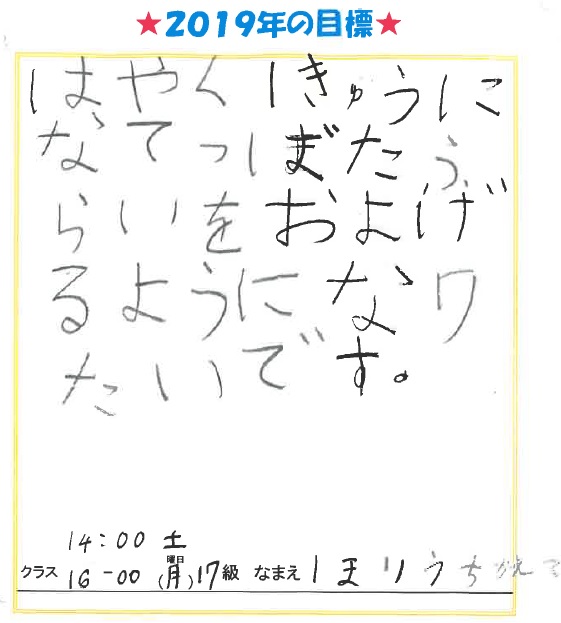 ★2019年の目標★
はやく1きゅうに
なてっばたふ
らいをおよげ
るようになり
たいです。
14:00 土
クラス 16-00 (月)曜日 17級 なまえ ほりうち